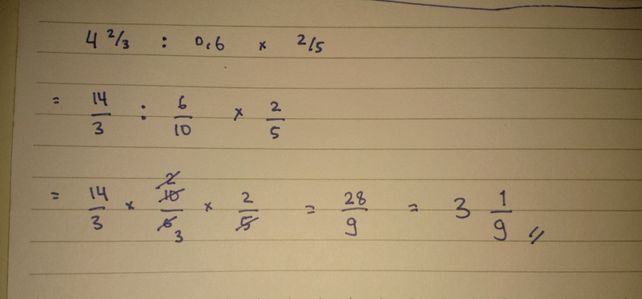 4 2/3 : 0,6 x 2/5
= 14/3 : 6/10 x 2/5
= 14/3 x 2 10/6 3 x 2/5 = 28/9 = 3 1/9 //